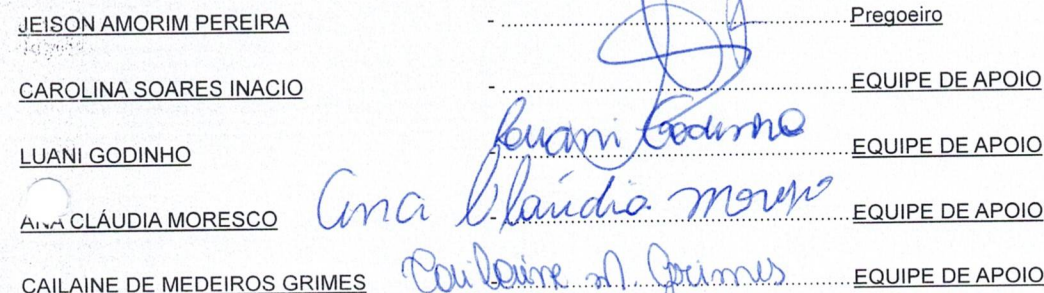 JEISON AMORIM PEREIRA - ........................................ Pregoeiro
CAROLINA SOARES INACIO - ........................................ EQUIPE DE APOIO
LUANI GODINHO - Luani Godinho EQUIPE DE APOIO
ANA CLÁUDIA MORESCO - Ana Claúdia Moresco EQUIPE DE APOIO
CAILAINE DE MEDEIROS GRIMES Cailaine M. Grimes EQUIPE DE APOIO